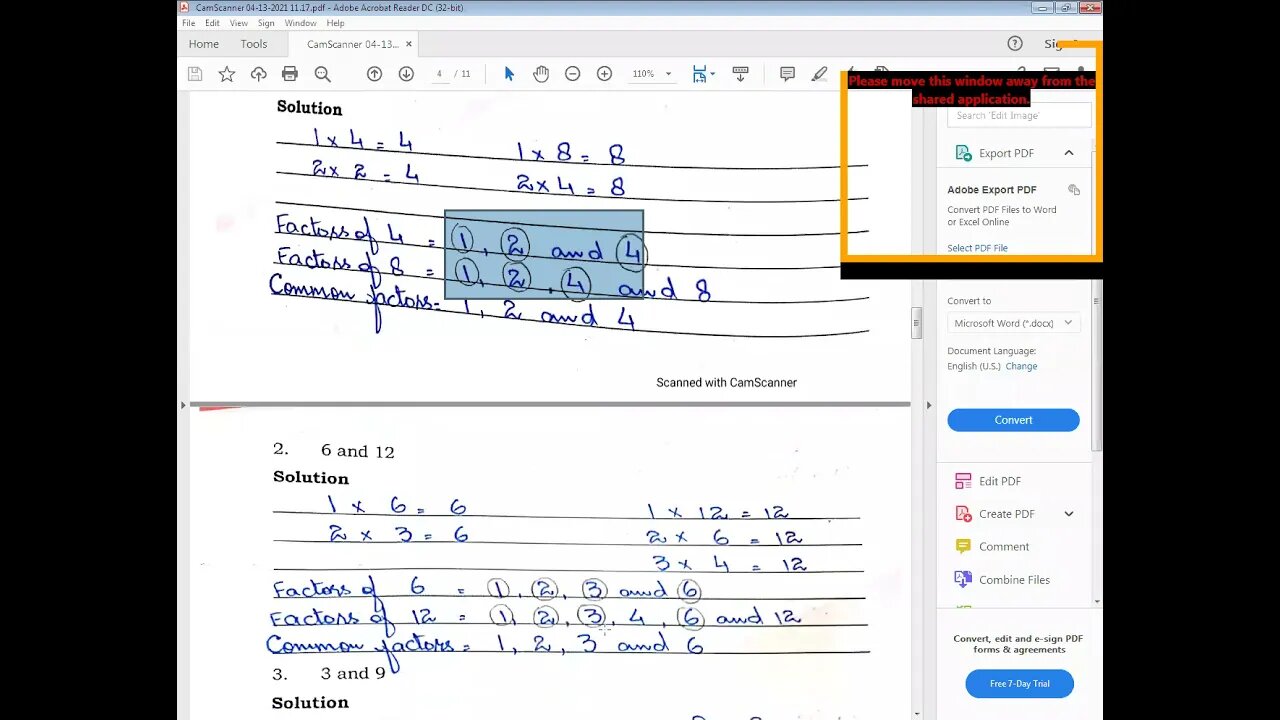 CamScanner 04-13-2021 11.17.pdf - Adobe Acrobat Reader DC (32-bit)
File Edit View Sign Window Help
Home Tools CamScanner 04-13... ×
4 / 11 110%
Please move this window away from the
shared application.
Search 'Edit Image'
Export PDF
Adobe Export PDF
Convert PDF Files to Word
or Excel Online
Select PDF File
Convert to
Microsoft Word (*.docx)
Document Language:
English (U.S.) Change
Convert
Edit PDF
Create PDF
Comment
Combine Files
Convert, edit and e-sign PDF
forms & agreements
Free 7-Day Trial
Solution
1 × 4 = 4 1 × 8 = 8
2 × 2 = 4 2 × 4 = 8
Factors of 4 = 1, 2 and 4
Factors of 8 = 1, 2, 4 and 8
Common factors = 1, 2 and 4
Scanned with CamScanner
2. 6 and 12
Solution
1 × 6 = 6 1 × 12 = 12
2 × 3 = 6 2 × 6 = 12
3 × 4 = 12
Factors of 6 = 1, 2, 3 and 6
Factors of 12 = 1, 2, 3, 4, 6 and 12
Common factors = 1, 2, 3 and 6
3. 3 and 9
Solution